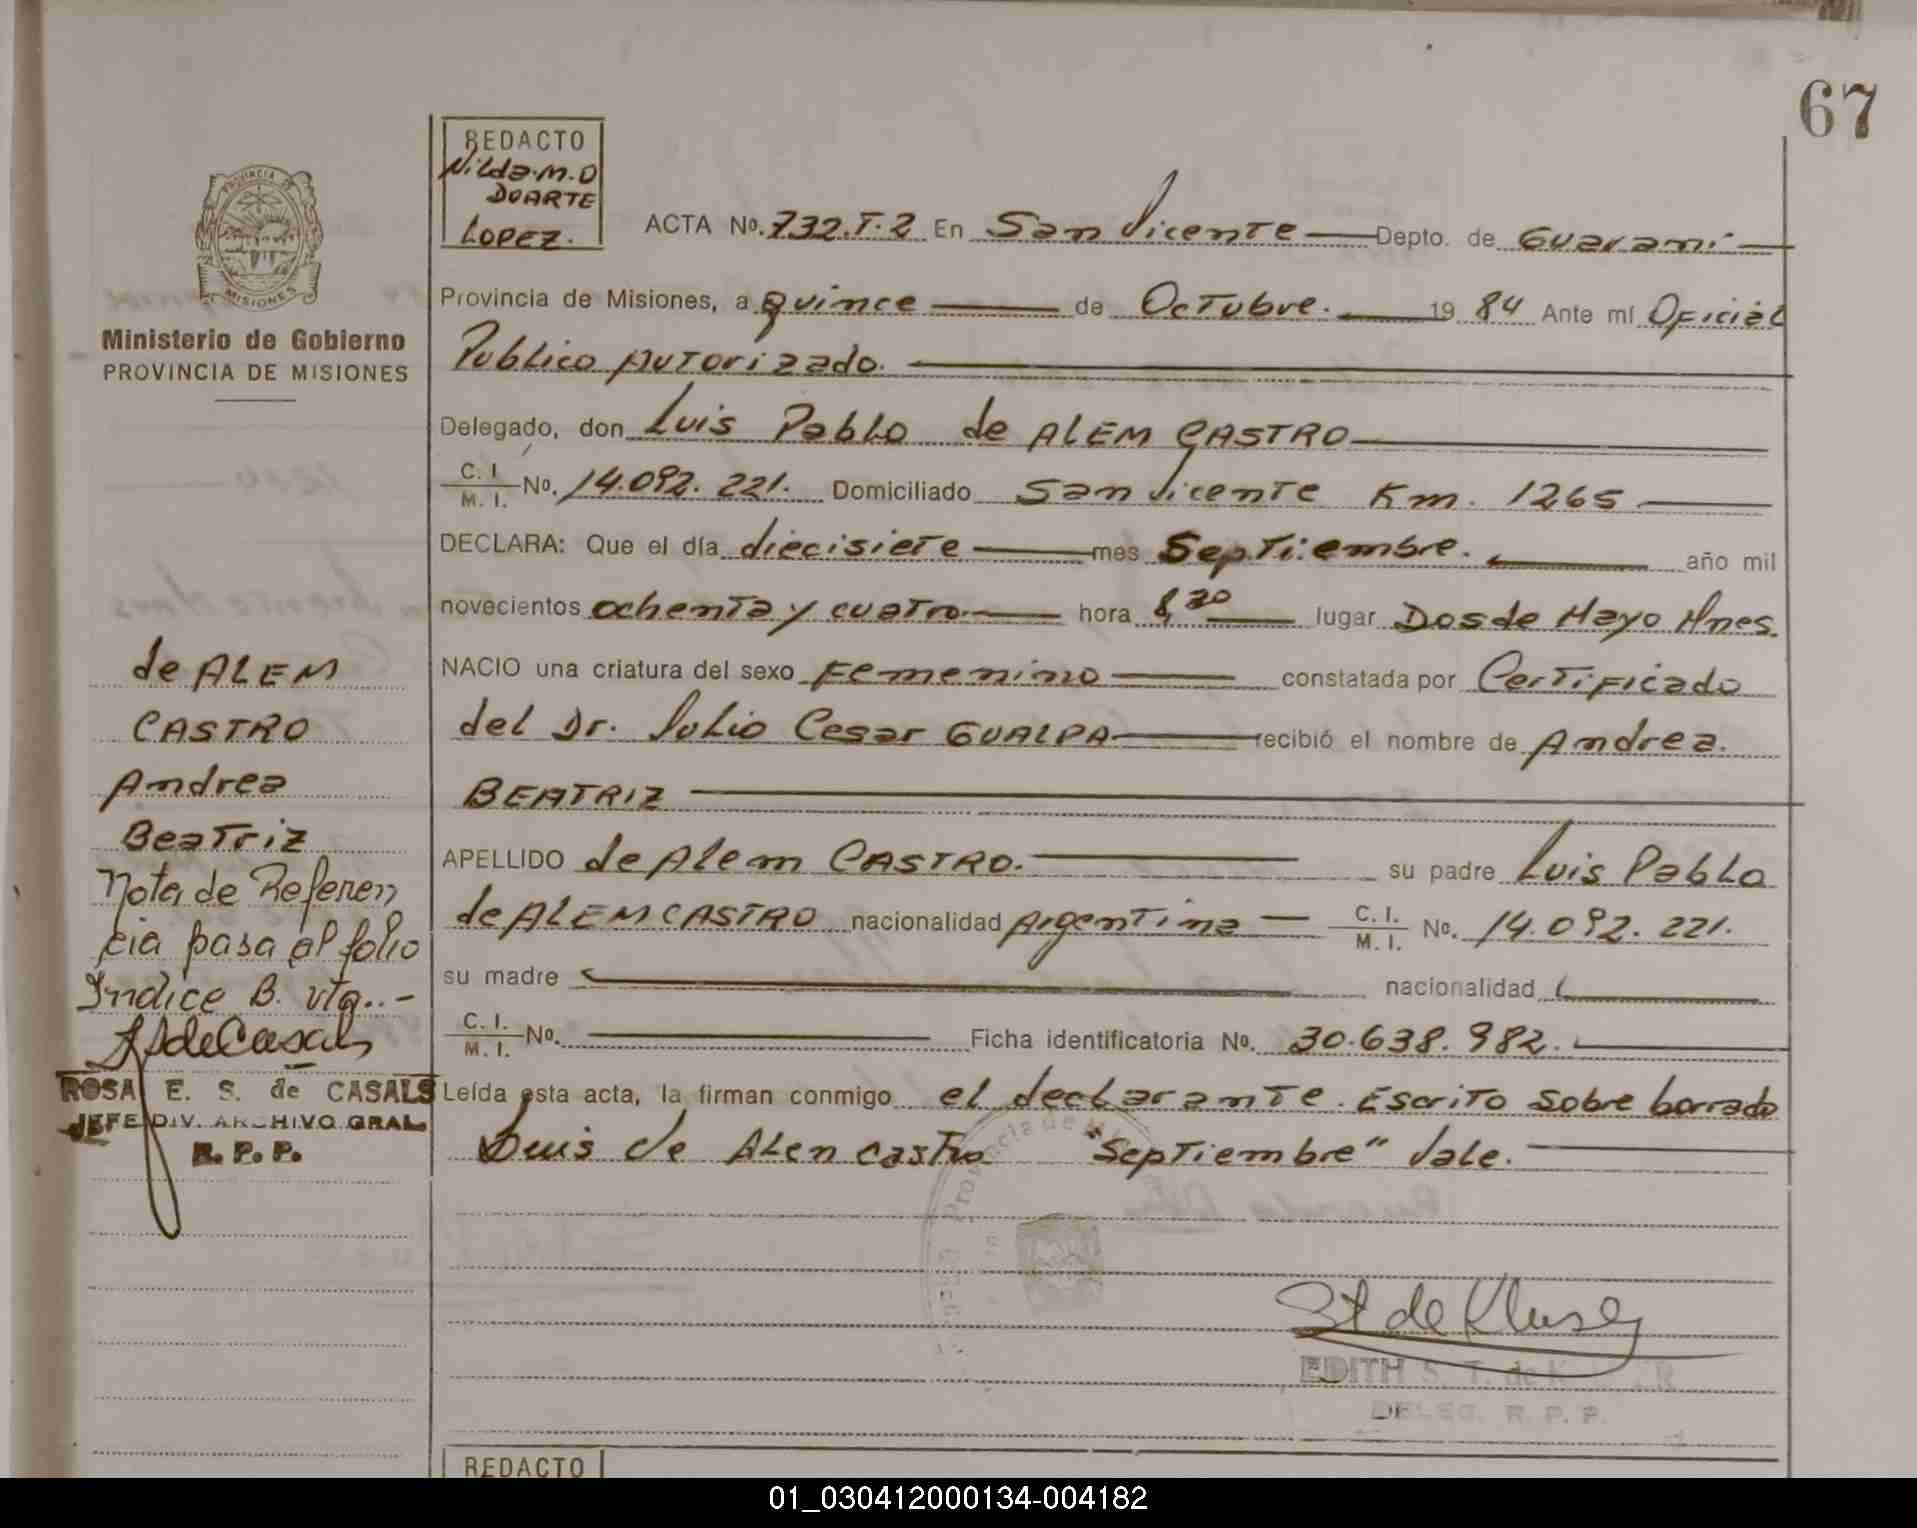 67
REDACTO
Nilda.M.D
DUARTE
LOPEZ.
PROVINCIA DE
MISIONES
Ministerio de Gobierno
PROVINCIA DE MISIONES
ACTA No. 732.T.2 En San Vicente Depto. de Guarani
Provincia de Misiones, a quince de Octubre. 19 84 Ante mí Oficial
Publico Autorizado.
Delegado, don Luis Pablo de ALEM CASTRO
C. I. / M. I. No. 14.092.221. Domiciliado San Vicente Km. 1265
DECLARA: Que el día diecisiete mes Septiembre. año mil
novecientos ochenta y cuatro hora 8,30 lugar Dos de Mayo Hnes.
NACIO una criatura del sexo Femenino constatada por Certificado
del Dr. Julio Cesar GUALPA recibió el nombre de Andrea.
BEATRIZ
APELLIDO de Alem CASTRO. su padre Luis Pablo
de ALEM CASTRO nacionalidad Argentina C. I. / M. I. No. 14.092.221.
su madre nacionalidad
C. I. / M. I. No. Ficha identificatoria No. 30.638.982.
Leída esta acta, la firman conmigo el declarante. Escrito sobre borrado
Luis de Alen castro "Septiembre" Vale.
de ALEM
CASTRO
Andrea
Beatriz
Nota de Referen
cia pasa al folio
Indice B. vta..-
de Casals
ROSA E. S. de CASALS
JEFE DIV. ARCHIVO GRAL.
R. P. P.
Provincia de
EDITH S. T. de
DELEG. R. P. P.
REDACTO
01_030412000134-004182